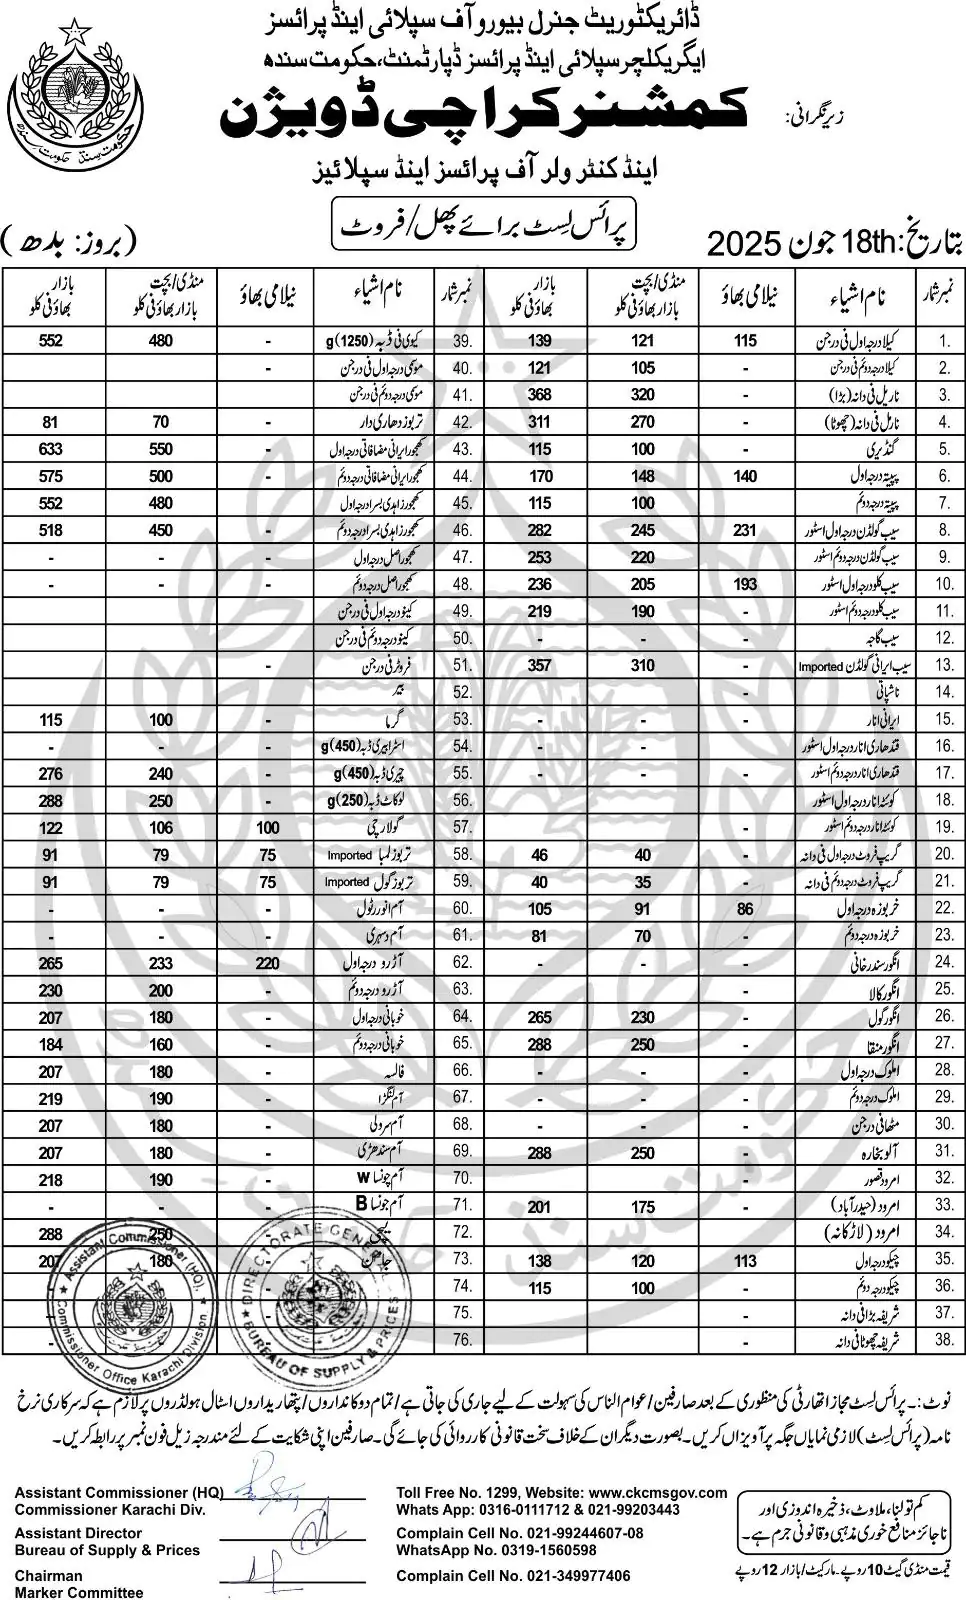 ڈائریکٹوریٹ جنرل بیورو آف سپلائی اینڈ پرائسز
ایگریکلچر سپلائی اینڈ پرائسز ڈپارٹمنٹ، حکومت سندھ
زیرنگرانی: کمشنر کراچی ڈویژن
اینڈ کنٹرولر آف پرائسز اینڈ سپلائیز
پرائس لسٹ برائے پھل/فروٹ
بتاریخ: 18th جون 2025 (بروز: بدھ)
نمبر شمار نام اشیاء نیلامی بھاؤ منڈی/بچت بازار بھاؤ فی کلو بازار بھاؤ فی کلو
1. کیلا درجہ اول فی درجن 115 121 139
2. کیلا درجہ دوئم فی درجن - 105 121
3. ناریل فی دانہ (بڑا) - 320 368
4. ناریل فی دانہ (چھوٹا) - 270 311
5. گنڈیری - 100 115
6. پپیتہ درجہ اول 140 148 170
7. پپیتہ درجہ دوئم - 100 115
8. سیب گولڈن درجہ اول اسٹور 231 245 282
9. سیب گولڈن درجہ دوئم اسٹور - 220 253
10. سیب کلو درجہ اول اسٹور 193 205 236
11. سیب کلو درجہ دوئم اسٹور - 190 219
12. سیب گاجہ - - -
13. سیب ایرانی گولڈن Imported - 310 357
14. ناشپاتی -
15. ایرانی انار - - -
16. قندھاری انار درجہ اول اسٹور - - -
17. قندھاری انار درجہ دوئم اسٹور - - -
18. کوئٹہ انار درجہ اول اسٹور
19. کوئٹہ انار درجہ دوئم اسٹور -
20. گریپ فروٹ درجہ اول فی دانہ - 40 46
21. گریپ فروٹ درجہ دوئم فی دانہ - 35 40
22. خربوزہ درجہ اول 86 91 105
23. خربوزہ درجہ دوئم - 70 81
24. انگور سندرخانی - - -
25. انگور کالا
26. انگور گول - 230 265
27. انگور منقا - 250 288
28. املوک درجہ اول - - -
29. املوک درجہ دوئم - - -
30. مٹھا فی درجن - - -
31. آلو بخارہ - 250 288
32. امرود قصور -
33. امرود (حیدرآباد) - 175 201
34. امرود (لاڑکانہ) -
35. چیکو درجہ اول 113 120 138
36. چیکو درجہ دوئم - 100 115
37. شریفہ بڑا فی دانہ -
38. شریفہ چھوٹا فی دانہ -
نمبر شمار نام اشیاء نیلامی بھاؤ منڈی/بچت بازار بھاؤ فی کلو بازار بھاؤ فی کلو
39. کیوی فی ڈبہ (1250)g - 480 552
40. موسمی درجہ اول فی درجن -
41. موسمی درجہ دوئم فی درجن
42. تربوز دھاری دار - 70 81
43. کھجور ایرانی مضافاتی درجہ اول - 550 633
44. کھجور ایرانی مضافاتی درجہ دوئم - 500 575
45. کھجور زاہدی بسرا درجہ اول - 480 552
46. کھجور زاہدی بسرا درجہ دوئم - 450 518
47. کھجور اصل درجہ اول - - -
48. کھجور اصل درجہ دوئم - - -
49. کینو درجہ اول فی درجن -
50. کینو درجہ دوئم فی درجن
51. فروٹر فی درجن -
52. بیر
53. گرما - 100 115
54. اسٹرابیری ڈبہ (450)g - - -
55. چیری ڈبہ (450)g - 240 276
56. لوکاٹ ڈبہ (250)g - 250 288
57. گولارچی 100 106 122
58. تربوز لمبا Imported 75 79 91
59. تربوز گول Imported 75 79 91
60. آم انور رٹول - - -
61. آم دسہری - - -
62. آڑو درجہ اول 220 233 265
63. آڑو درجہ دوئم - 200 230
64. خوبانی درجہ اول - 180 207
65. خوبانی درجہ دوئم - 160 184
66. فالسہ - 180 207
67. آم لنگڑا - 190 219
68. آم سرولی - 180 207
69. آم سندھڑی - 180 207
70. آم چونسا W - 190 218
71. آم چونسا B - - -
72. لیچی 250 288
73. جامن 180 207
74.
75.
76.
Assistant Commissioner (HQ)
Commissioner Office Karachi Division
DIRECTORATE GENERAL
BUREAU OF SUPPLY & PRICES
نوٹ:۔ پرائس لسٹ مجاز اتھارٹی کی منظوری کے بعد صارفین/عوام الناس کی سہولت کے لیے جاری کی جاتی ہے/تمام دوکانداروں/پتھاریداروں اسٹال ہولڈروں پر لازم ہے کہ سرکاری نرخ
نامہ (پرائس لسٹ) لازمی نمایاں جگہ پر آویزاں کریں۔ بصورت دیگر ان کے خلاف سخت قانونی کارروائی کی جائے گی۔ صارفین اپنی شکایت کے لئے مندرجہ زیل فون نمبر پر رابطہ کریں۔
Assistant Commissioner (HQ)
Commissioner Karachi Div.
Assistant Director
Bureau of Supply & Prices
Chairman
Marker Committee
Toll Free No. 1299, Website: www.ckcmsgov.com
Whats App: 0316-0111712 & 021-99203443
Complain Cell No. 021-99244607-08
WhatsApp No. 0319-1560598
Complain Cell No. 021-349977406
کم تولنا، ملاوٹ، ذخیرہ اندوزی اور
ناجائز منافع خوری مذہبی و قانونی جرم ہے۔
قیمت منڈی گیٹ 10 روپے۔ مارکیٹ/بازار 12 روپے